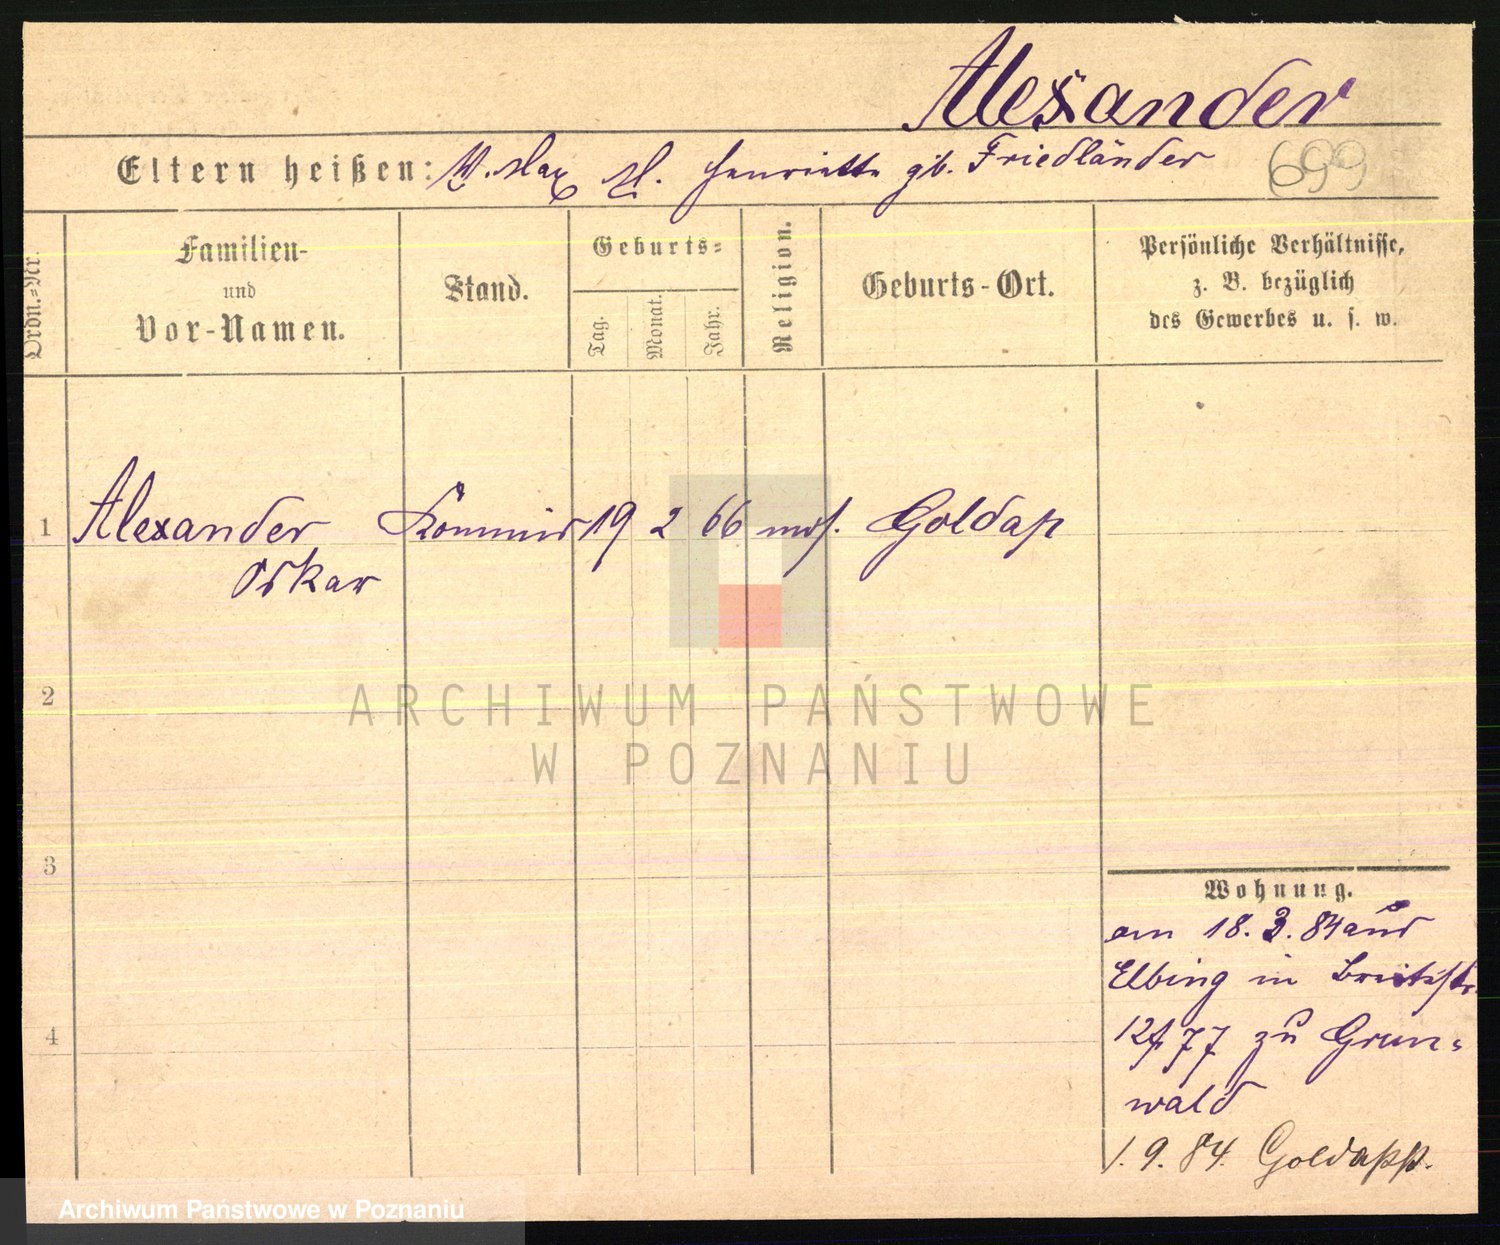 Alexander
Eltern heißen: V. Max M. Henriette gb. Friedländer 699
Ordn.=Nr.
Familien-
und
Vor-Namen.
Stand.
Geburts=
Tag.
Monat.
Jahr.
Religion.
Geburts-Ort.
Persönliche Verhältnisse,
z. B. bezüglich
des Gewerbes u. s. w.
1 Alexander Kommis 19 2 66 mos. Goldap
Oskar
2
ARCHIWUM PAŃSTWOWE
W POZNANIU
3
4
Wohnung.
am 18. 3. 84 aus
Elbing in Breitestr.
zu Grun=
wald
1. 9. 84. Goldapp.
Archiwum Państwowe w Poznaniu